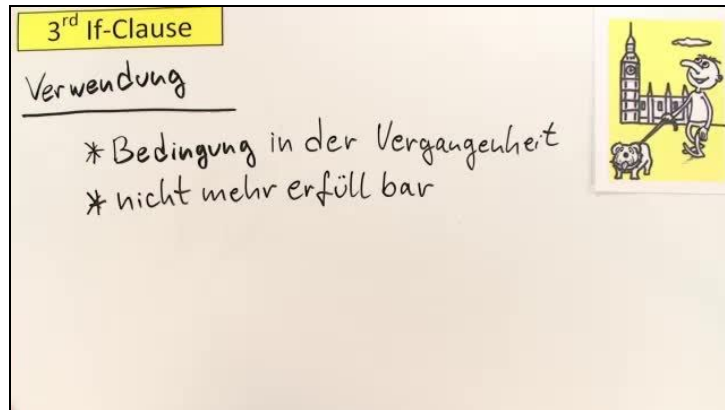 3rd If-Clause
Verwendung
* Bedingung in der Vergangenheit
* nicht mehr erfüllbar